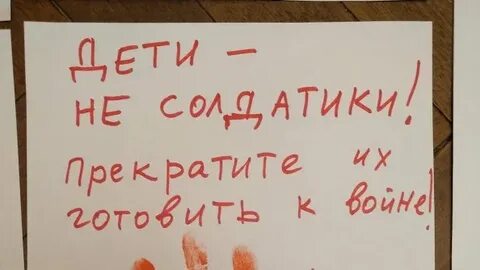 ДЕТИ –
НЕ СОЛДАТИКИ!
Прекратите их
готовить к войне!